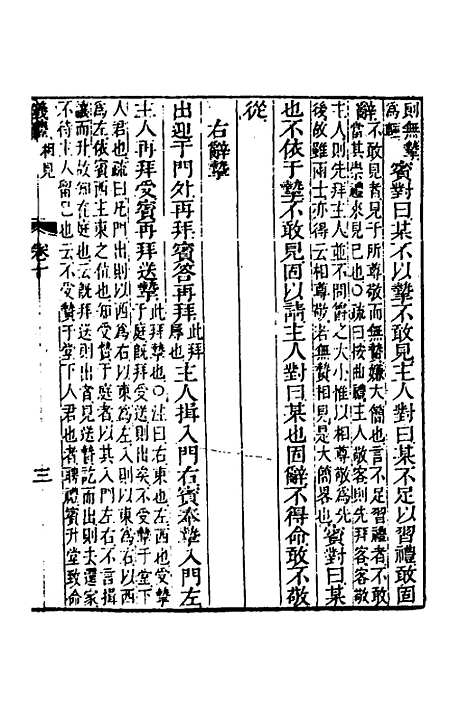 則無摯
為輕
賓對曰某不以摯不敢見主人對曰某不足以習禮敢固
辭
不敢見者見于所尊敬而無贄嫌大簡也言不足習禮者不敢
當其崇禮來見己也○疏曰按曲禮主人敬客則先拜客客敬
主人則先拜主人並不問爵之大小惟以相尊敬為先
後故雖兩士亦得云尊敬者無贄相見是大簡畧也
賓對曰某
也不依于摯不敢見固以請主人對曰某也固辭不得命敢不敬
從
右辭摯
出迎于門外再拜賓答再拜
此拜
辱也
主人揖入門右賓奉摯入門左
主人再拜受賓再拜送摯
此拜摯也○注曰右東也左西也受摯
于庭既拜受送則出矣不受摯于堂下
人君也疏曰凡門出則以西為右以東為左入則以東為右以西
為左依賓西主東之位也知受贄于庭者以其入門左右不言揖
讓而升故知在庭也云既拜送則出者見送贄訖而出則去還家
不待主人留己也云不受贄于堂下人君也者聘禮賓升堂致命
儀禮
相見
卷十
三